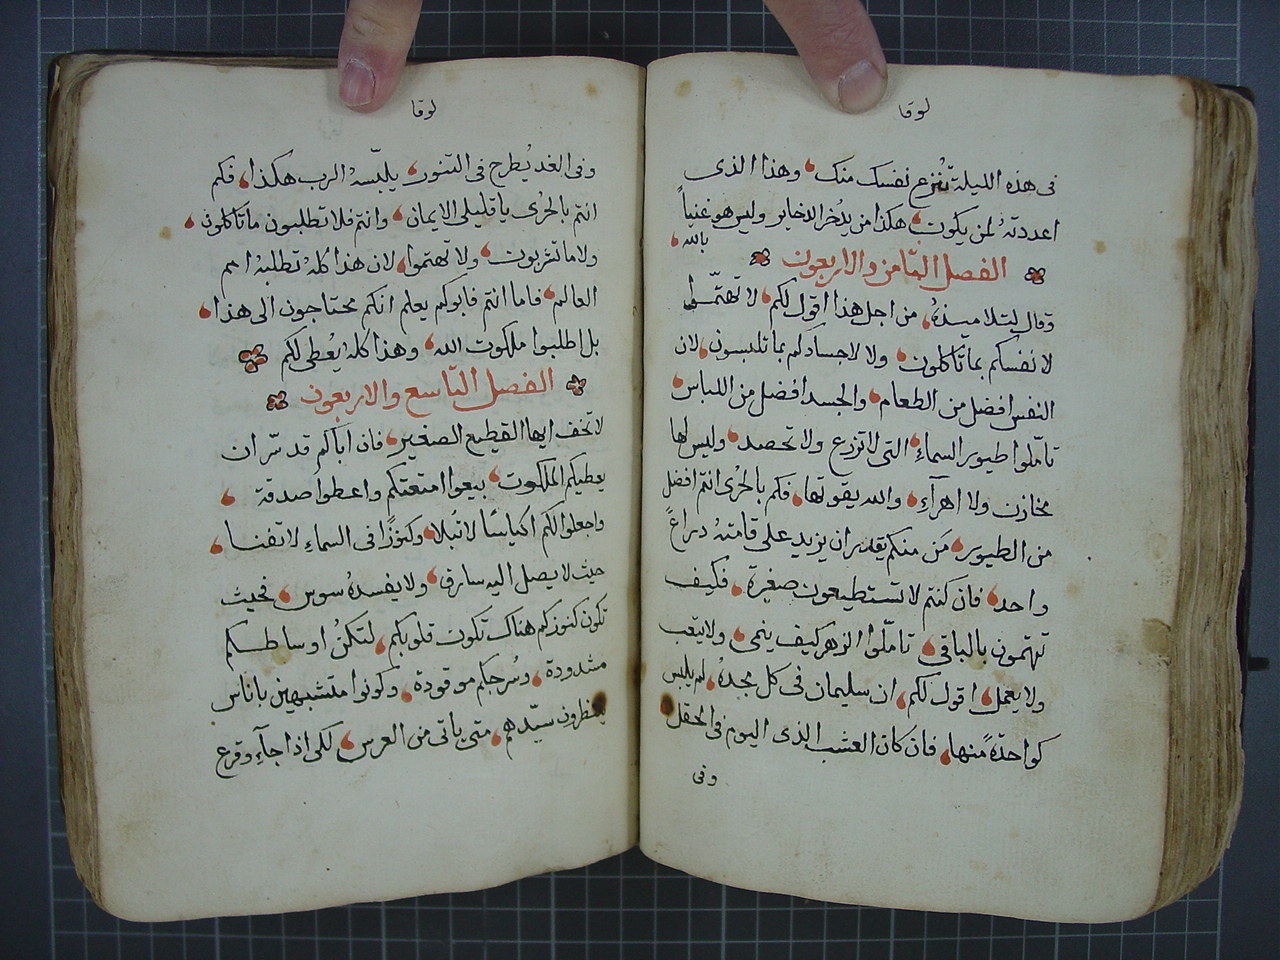 لوقا
فى هذه الليلة تُنزع نفسك منك وهذا الذى
اعددتهُ لمن يكون هكذا من يدُخر الدخاير وليس هو غنياً
بالله
الفصل الثامن والاربعون
وقال لتلاميذهُ من اجل هذا اقول لكم لا تهتمّوا
لانفسكم بما تاكلون ولا لاجسادكم بما تلبسون لان
النفس افضل من الطعام والجسد افضل من اللباس
تامّلوا طيور السماءِ التى لاتزرع ولا تحصد وليس لها
مخازن ولا اهرآءِ والله يقوتها فكم بالحرُى انتم افضل
من الطيور مَن منكم يقدر ان يزيد على قامتهُ دراعً
واحد فان كنتم لا تستطيعون صغيرة فكيف
تهتمون بالباقى تامّلوا الزهر كيف ينمى ولا يتعب
ولا يعمل اقول لكم ان سليمان فى كل مجدهُ لم يلبس
كواحدّة منها فان كان العشب الذى اليوم فى الحقل
وفى
لوقا
وفى الغد يُطرح فى التنور يلبّسهُ الرب هكذا فكم
انتم بالحرُى ياقليلى الايمان وانتم فلا تطلبون ما تاكلون
ولا ما تشربون ولا تهتموا لان هذا كلهُ تطلبهُ امم
العالم فاما انتم فابوكم يعلم انكم محتاجون الى هذا
بل اطلبوا ملكوت الله وهذا كله يُعطى لكم
الفصل التاسع والاربعون
لا تخف ايها القطيع الصغير فان اباكم قد سّر ان
يعطيكم الملكوت بيعوا امتعتكم واعطوا صدقة
واجعلوا لكم اكياسًا لا تُبلا وكنوزًا فى السماءِ لا تفنا
حيث لا يصل اليه سارق ولا يفسدهُ سوس فحيث
تكون كنوزكم هناك تكون قلوبكم لتكنُ اوساطكم
مشدودة وسُرجكم موقودة وكونوا متشبهين باناس
ينتظرون سيّدهم متى ياتى من العرس لكى اذا جآءِ وقرع